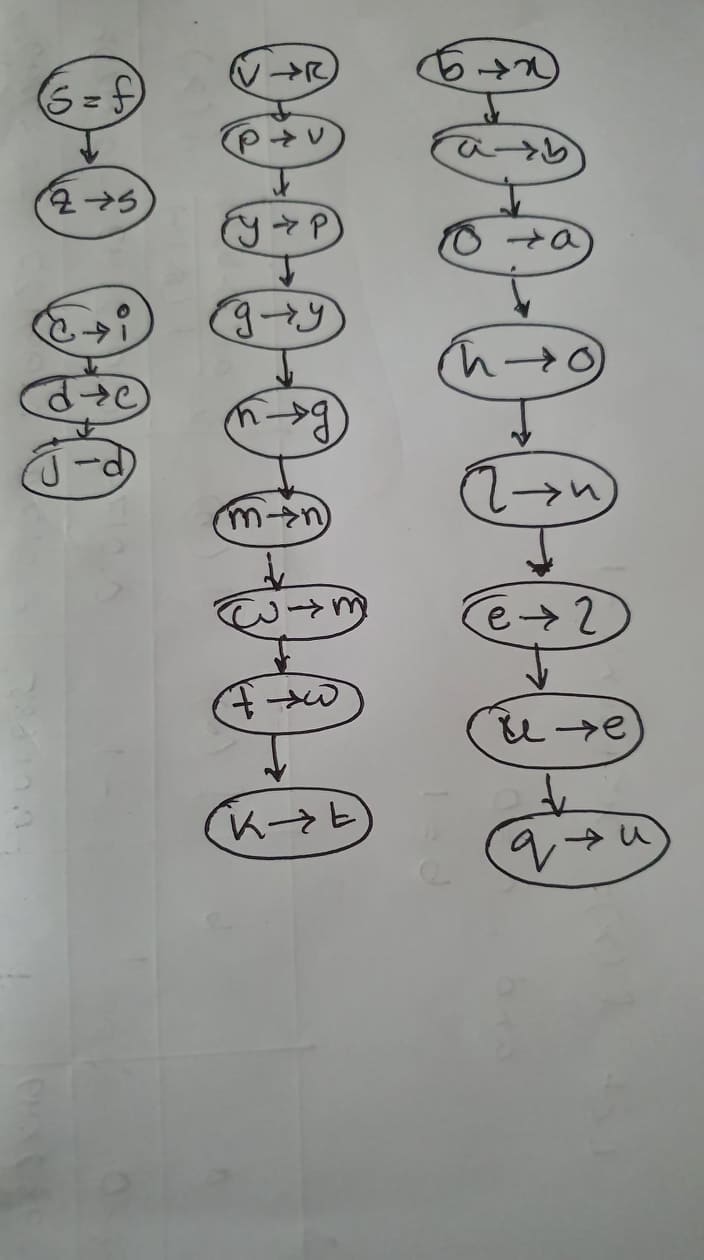 s = f
z → s
c → i
d → c
j - d
v → R
p → v
y → p
g → y
n → g
m → n
w → m
t → w
k → t
b → x
a → b
o → a
h → o
l → h
e → l
u → e
q → u